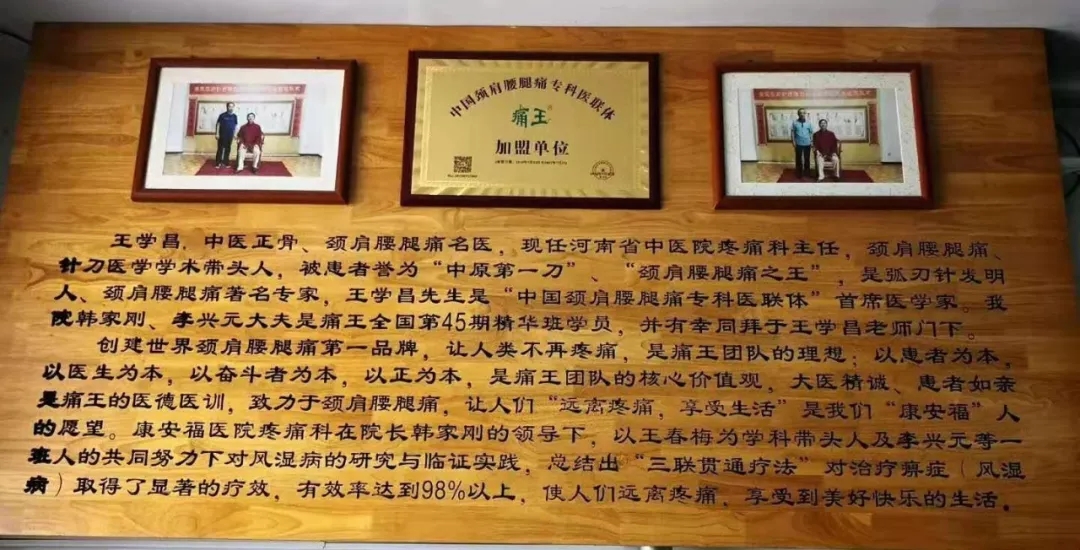 中国颈肩腰腿痛专科医联体
痛王
加盟单位
王学昌,中医正骨、颈肩腰腿痛名医,现任河南省中医院疼痛科主任,颈肩腰腿痛、
针刀医学学术带头人,被患者誉为“中原第一刀”、“颈肩腰腿痛之王”,是弧刃针发明
人、颈肩腰腿痛著名专家,王学昌先生是“中国颈肩腰腿痛专科医联体”首席医学家。我
院韩家刚、李兴元大夫是痛王全国第45期精华班学员,并有幸同拜于王学昌老师门下。
创建世界颈肩腰腿痛第一品牌,让人类不再疼痛,是痛王团队的理想;以患者为本,
以医生为本,以奋斗者为本,以正为本,是痛王团队的核心价值观,大医精诚、患者如亲
是痛王的医德医训,致力于颈肩腰腿痛,让人们“远离疼痛,享受生活”是我们“康安福”人
的愿望。康安福医院疼痛科在院长韩家刚的领导下,以王春梅为学科带头人及李兴元等一
班人的共同努力下对风湿病的研究与临证实践,总结出“三联贯通疗法”对治疗痹症(风湿
病)取得了显著的疗效,有效率达到98%以上,使人们远离疼痛,享受到美好快乐的生活。